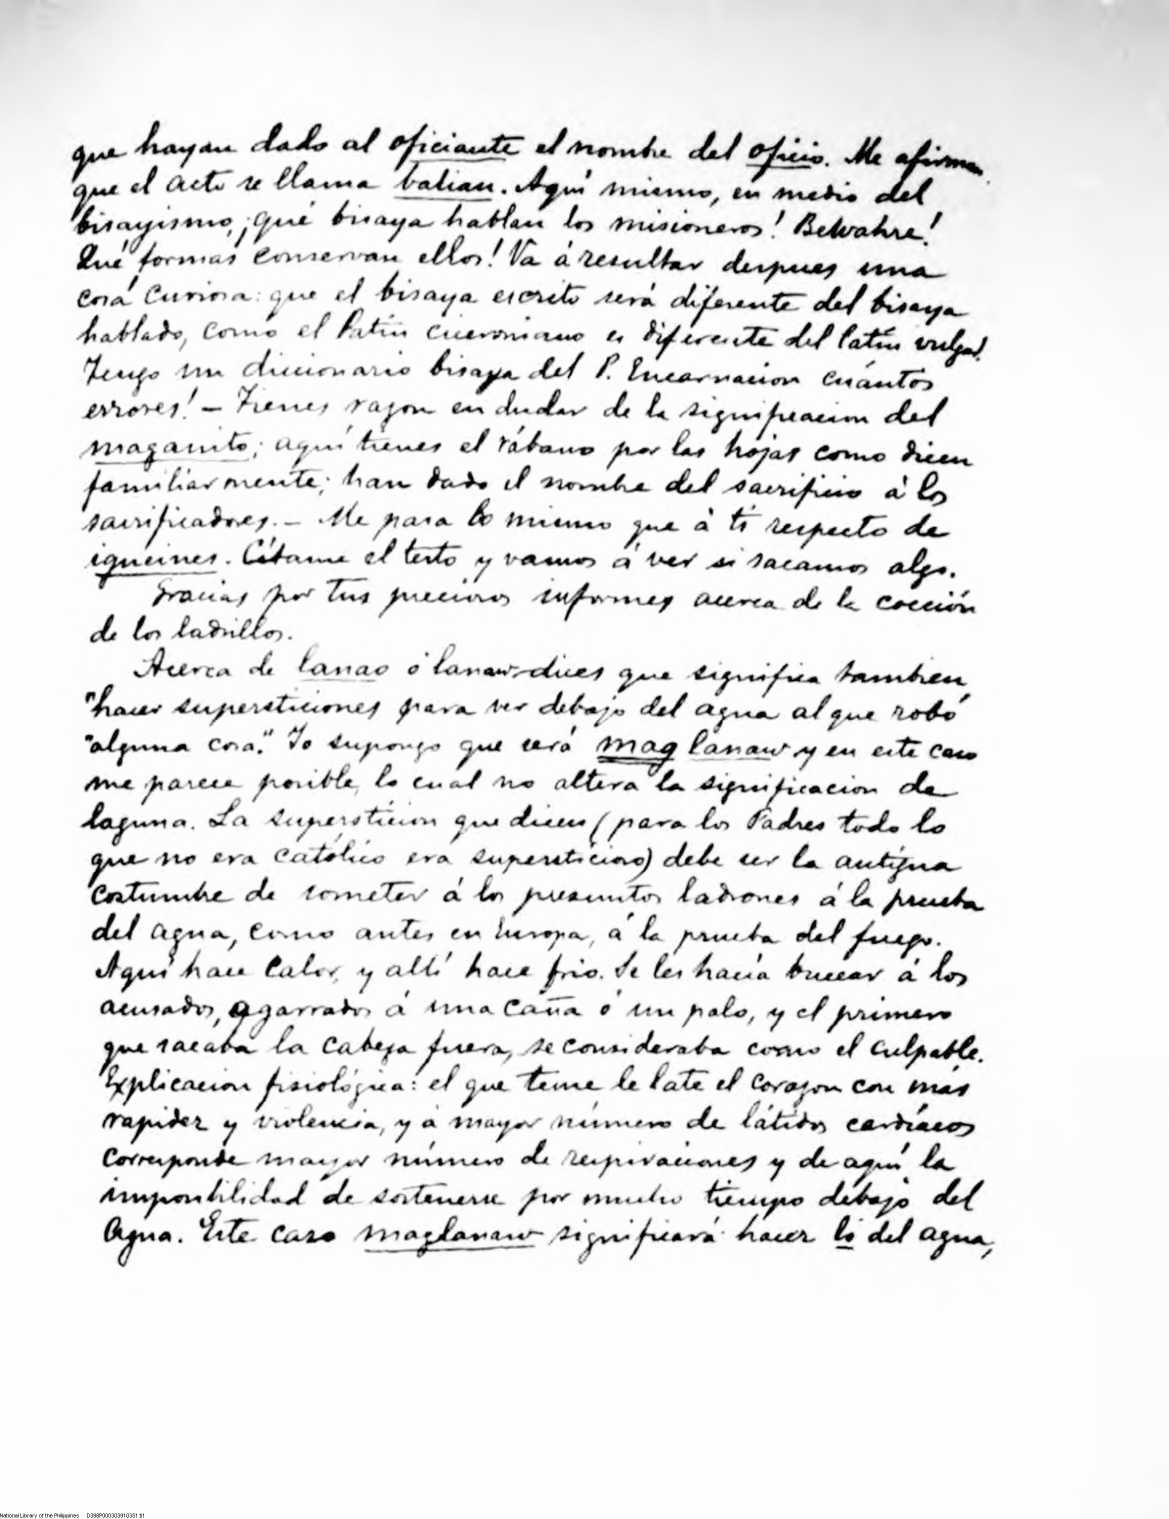 que hayan dado al oficiante el nombre del oficio. Me afirman
que el acto se llama balian. Aquí mismo, en medio del
bisayismo, ¡qué bisaya hablan los misioneros! Bewahre!
Qué formas conservan ellos! Va á resultar despues una
cosa curiosa: que el bisaya escrito será diferente del bisaya
hablado, como el latin ciceroniano es diferente del latin vulgar.
Tengo un diccionario bisaya del P. Encarnacion cuántos
errores! — Tienes razon en dudar de la significacion del
maganito; aquí tienes el rábano por las hojas como dicen
familiarmente; han dado el nombre del sacrificio á los
sacrificadores. — Me pasa lo mismo que á tí respecto de
igueines. Cítame el texto y vamos á ver si sacamos algo.
Gracias por tus preciosos informes acerca de la coccion
de los ladrillos.
Acerca de lanao ó lanaw dices que significa tambien
"hacer supersticiones para ver debajo del agua al que robó
"alguna cosa." Yo supongo que será mag lanaw y en este caso
me parece posible, lo cual no altera la significacion de
laguna. La supersticion que dicen (para los Padres todo lo
que no era católico era supersticioso) debe ser la antigua
costumbre de someter á los presuntos ladrones á la prueba
del agua, como antes en Europa, á la prueba del fuego.
Aquí hace calor, y allí hace frio. Se les hacía bucear á los
acusados, agarrados á una caña ó un palo, y el primero
que sacaba la cabeza fuera, se consideraba como el culpable.
Explicacion fisiológica: el que teme le late el corazon con más
rapidez y violencia, y á mayor número de látidos cardíacos
corresponde mayor número de respiraciones y de aquí la
imposibilidad de sostenerse por mucho tiempo debajo del
agua. Este caso maglanaw significará hacer lo del agua,
National Library of the Philippines